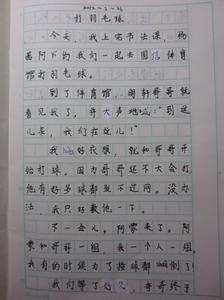 打羽毛球
今天，我上完书法课，杨
阿下的我们一起去国信体育
馆打羽毛球。
到了体育馆，明轩哥哥就
看见我了，奇大声地喊："到这
儿来，我们在这儿！"
我换好衣服，就和哥哥开
始打球。因为哥哥还不大会打
他有好多球都发不过网。没办
法，我只好教他一下。
不一会儿，阿蒙来了。阿
蒙和哥哥一组，我一个人一组，
我有的时候为了接球都倒了！
我们等了好久，哥哥终于